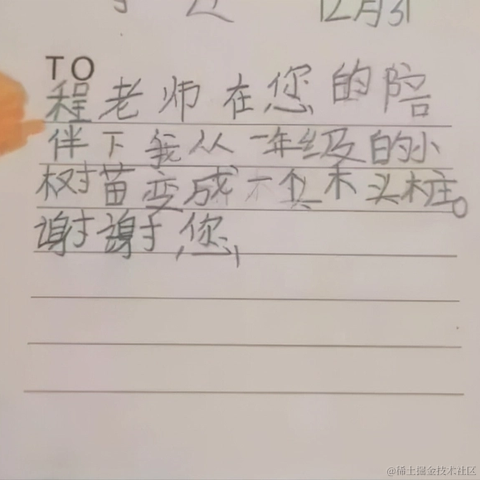 12月31
TO
程老师在您的陪
伴下我从一年级的小
树苗变成一个木头桩。
谢谢您
@稀土掘金技术社区